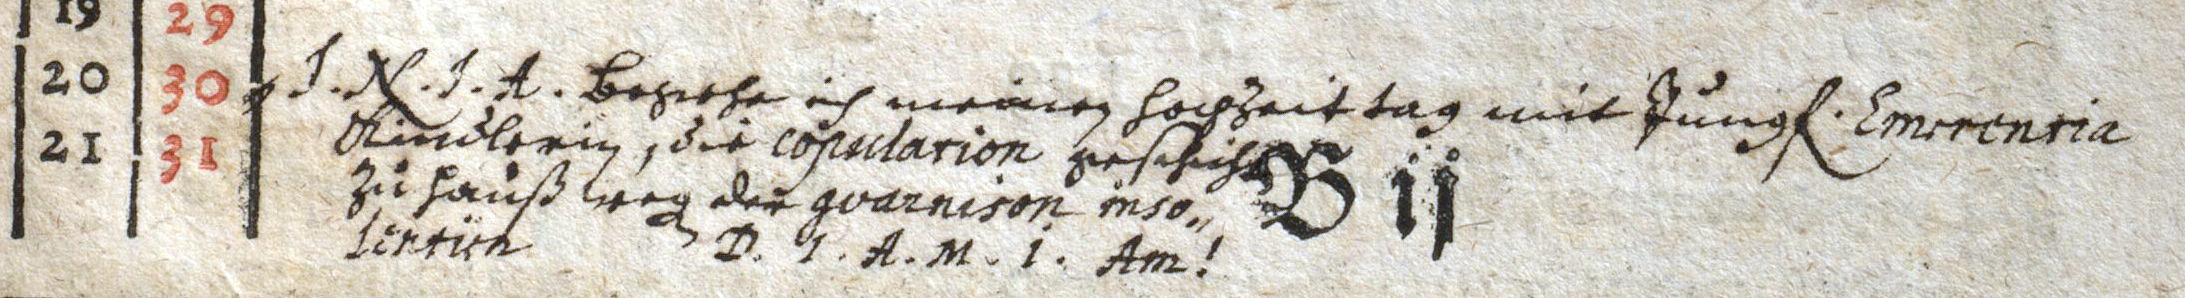 19 29
20 30 I. N. I. A. Begehe ich meinen hochzeit tag mit Jungf. Emerentia
21 31 die copulation geschicht
zu hauß weg der guarnison inso„ B ij
lentien D. I. A. M. I. Am!